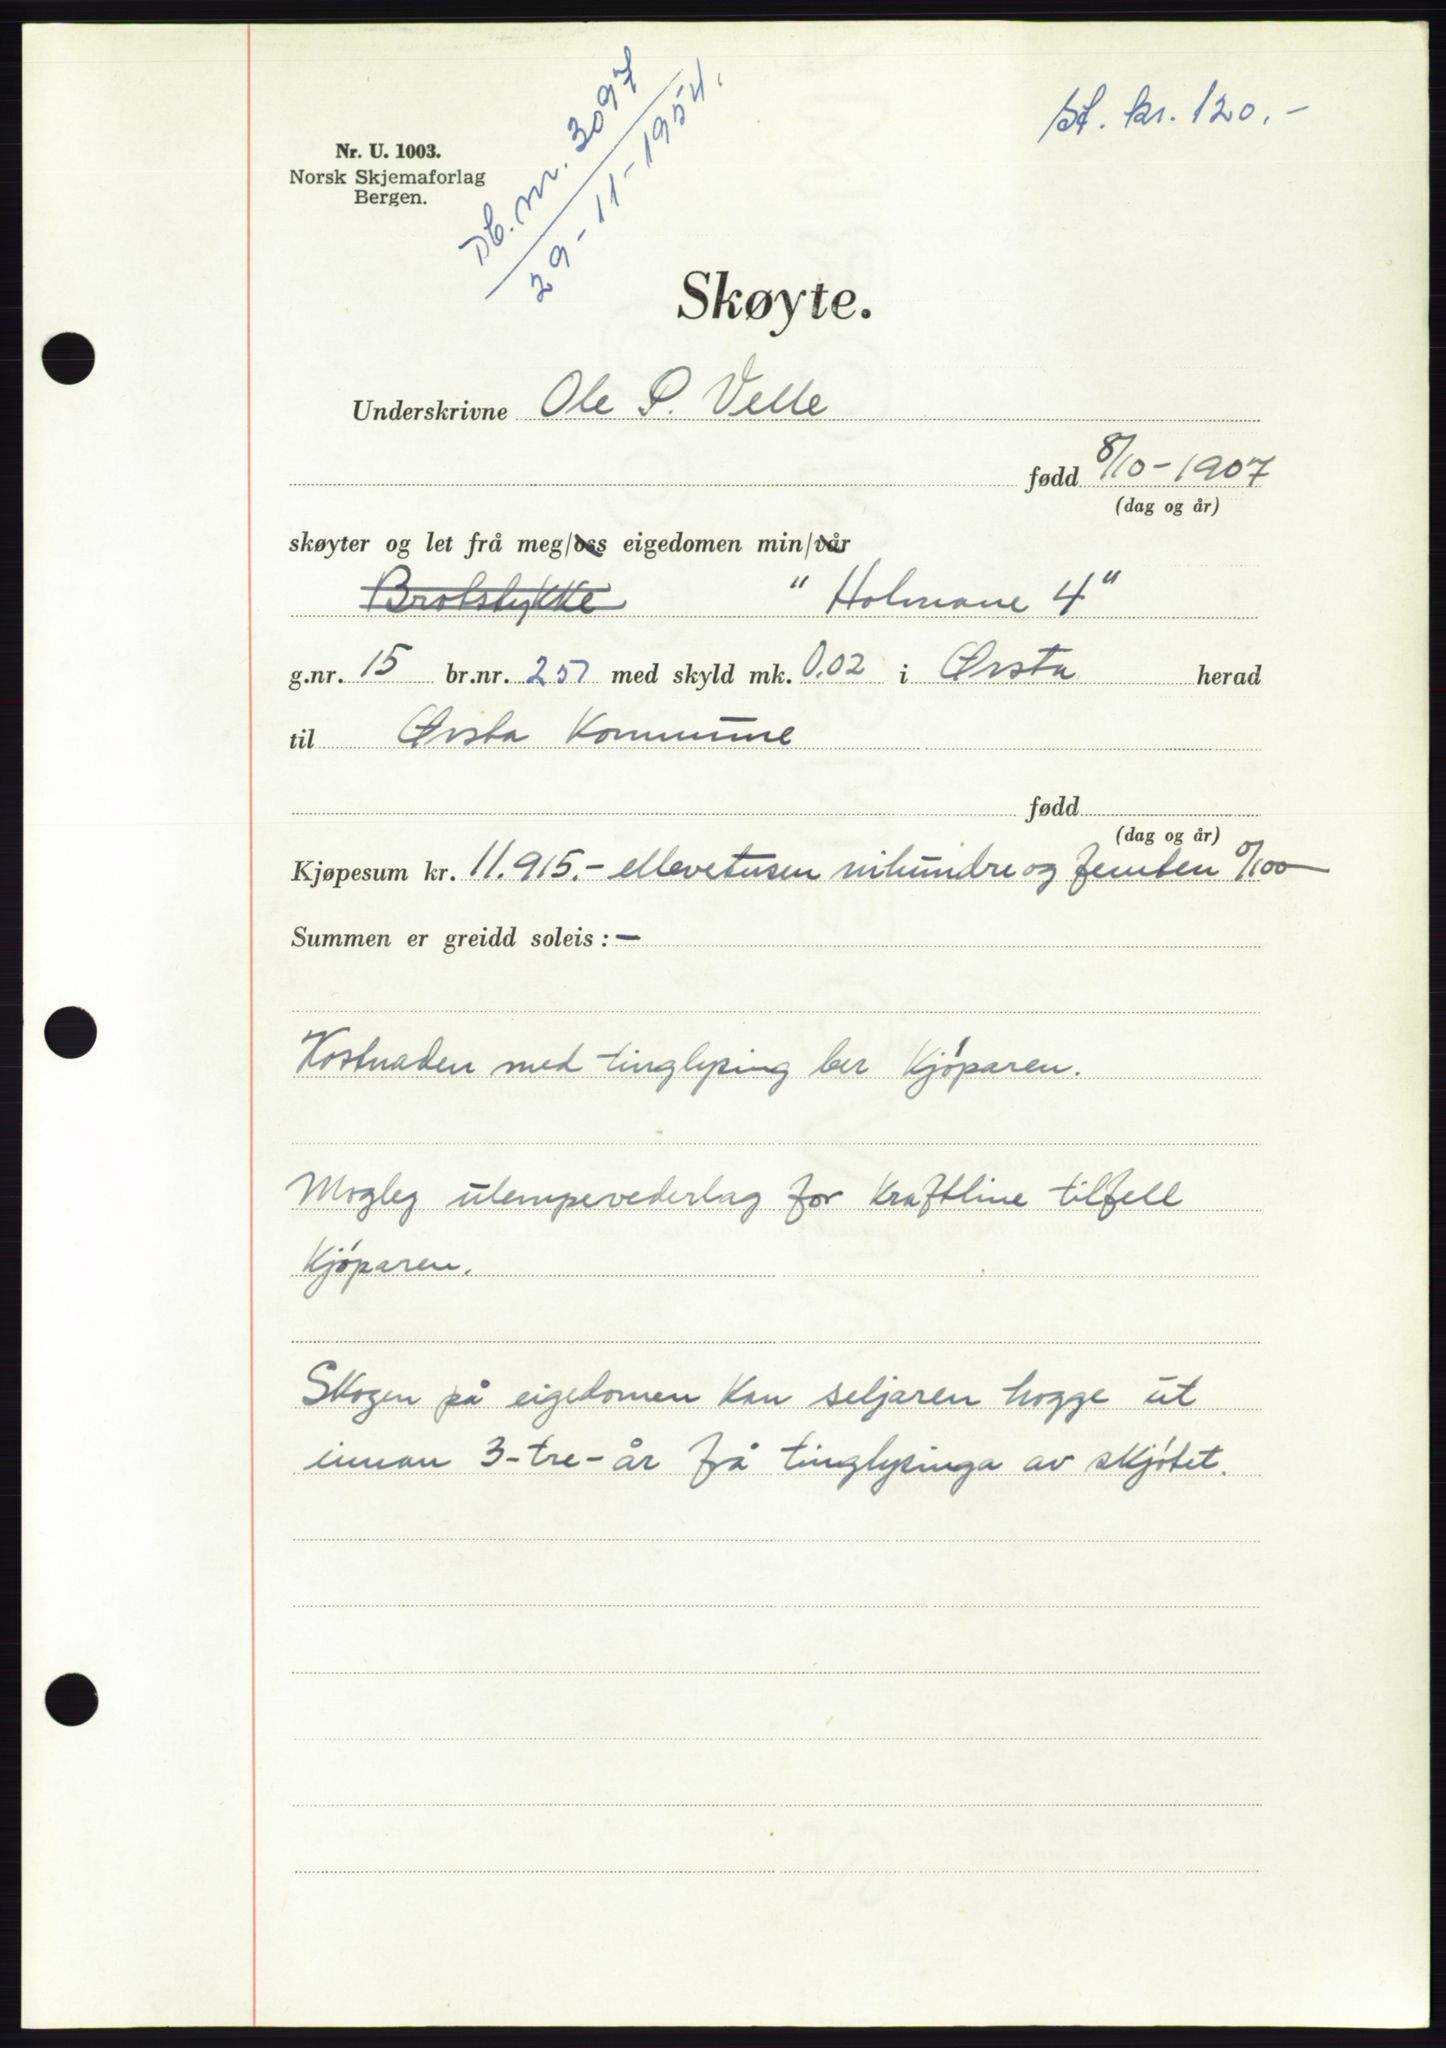 St. kr. 120.-
Db. nr. 3097
29-11-1954.
Nr. U. 1003.
Norsk Skjemaforlag
Bergen.
Skøyte.
Underskrivne Ole P. Velle
fødd 8/10-1907
(dag og år)
skøyter og let frå meg/oss eigedomen min/vår
Brotstykke "Holmane 4"
g.nr. 15 br.nr. 257 med skyld mk. 0.02 i Ørsta herad
til Ørsta Kommune
fødd
(dag og år)
Kjøpesum kr. 11.915.- ellevetusen nihundre og femten 0/100
Summen er greidd soleis: -
Kostnaden med tinglysing ber Kjöparen.
Mogleg ulempevederlag for Kraftline tilfell
Kjöparen.
Skogen på eigedomen kan seljaren hogge ut
innan 3-tre-år frå tinglysinga av skjötet.